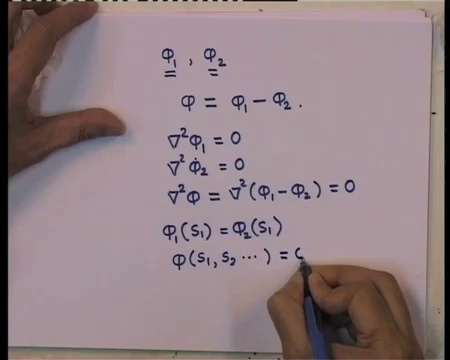 φ₁ , φ₂
φ = φ₁ − φ₂ .
∇²φ₁ = 0
∇²φ₂ = 0
∇²φ = ∇²(φ₁ − φ₂) = 0
φ₁(S₁) = φ₂(S₁)
φ(S₁, S₂ ⋯ ) =